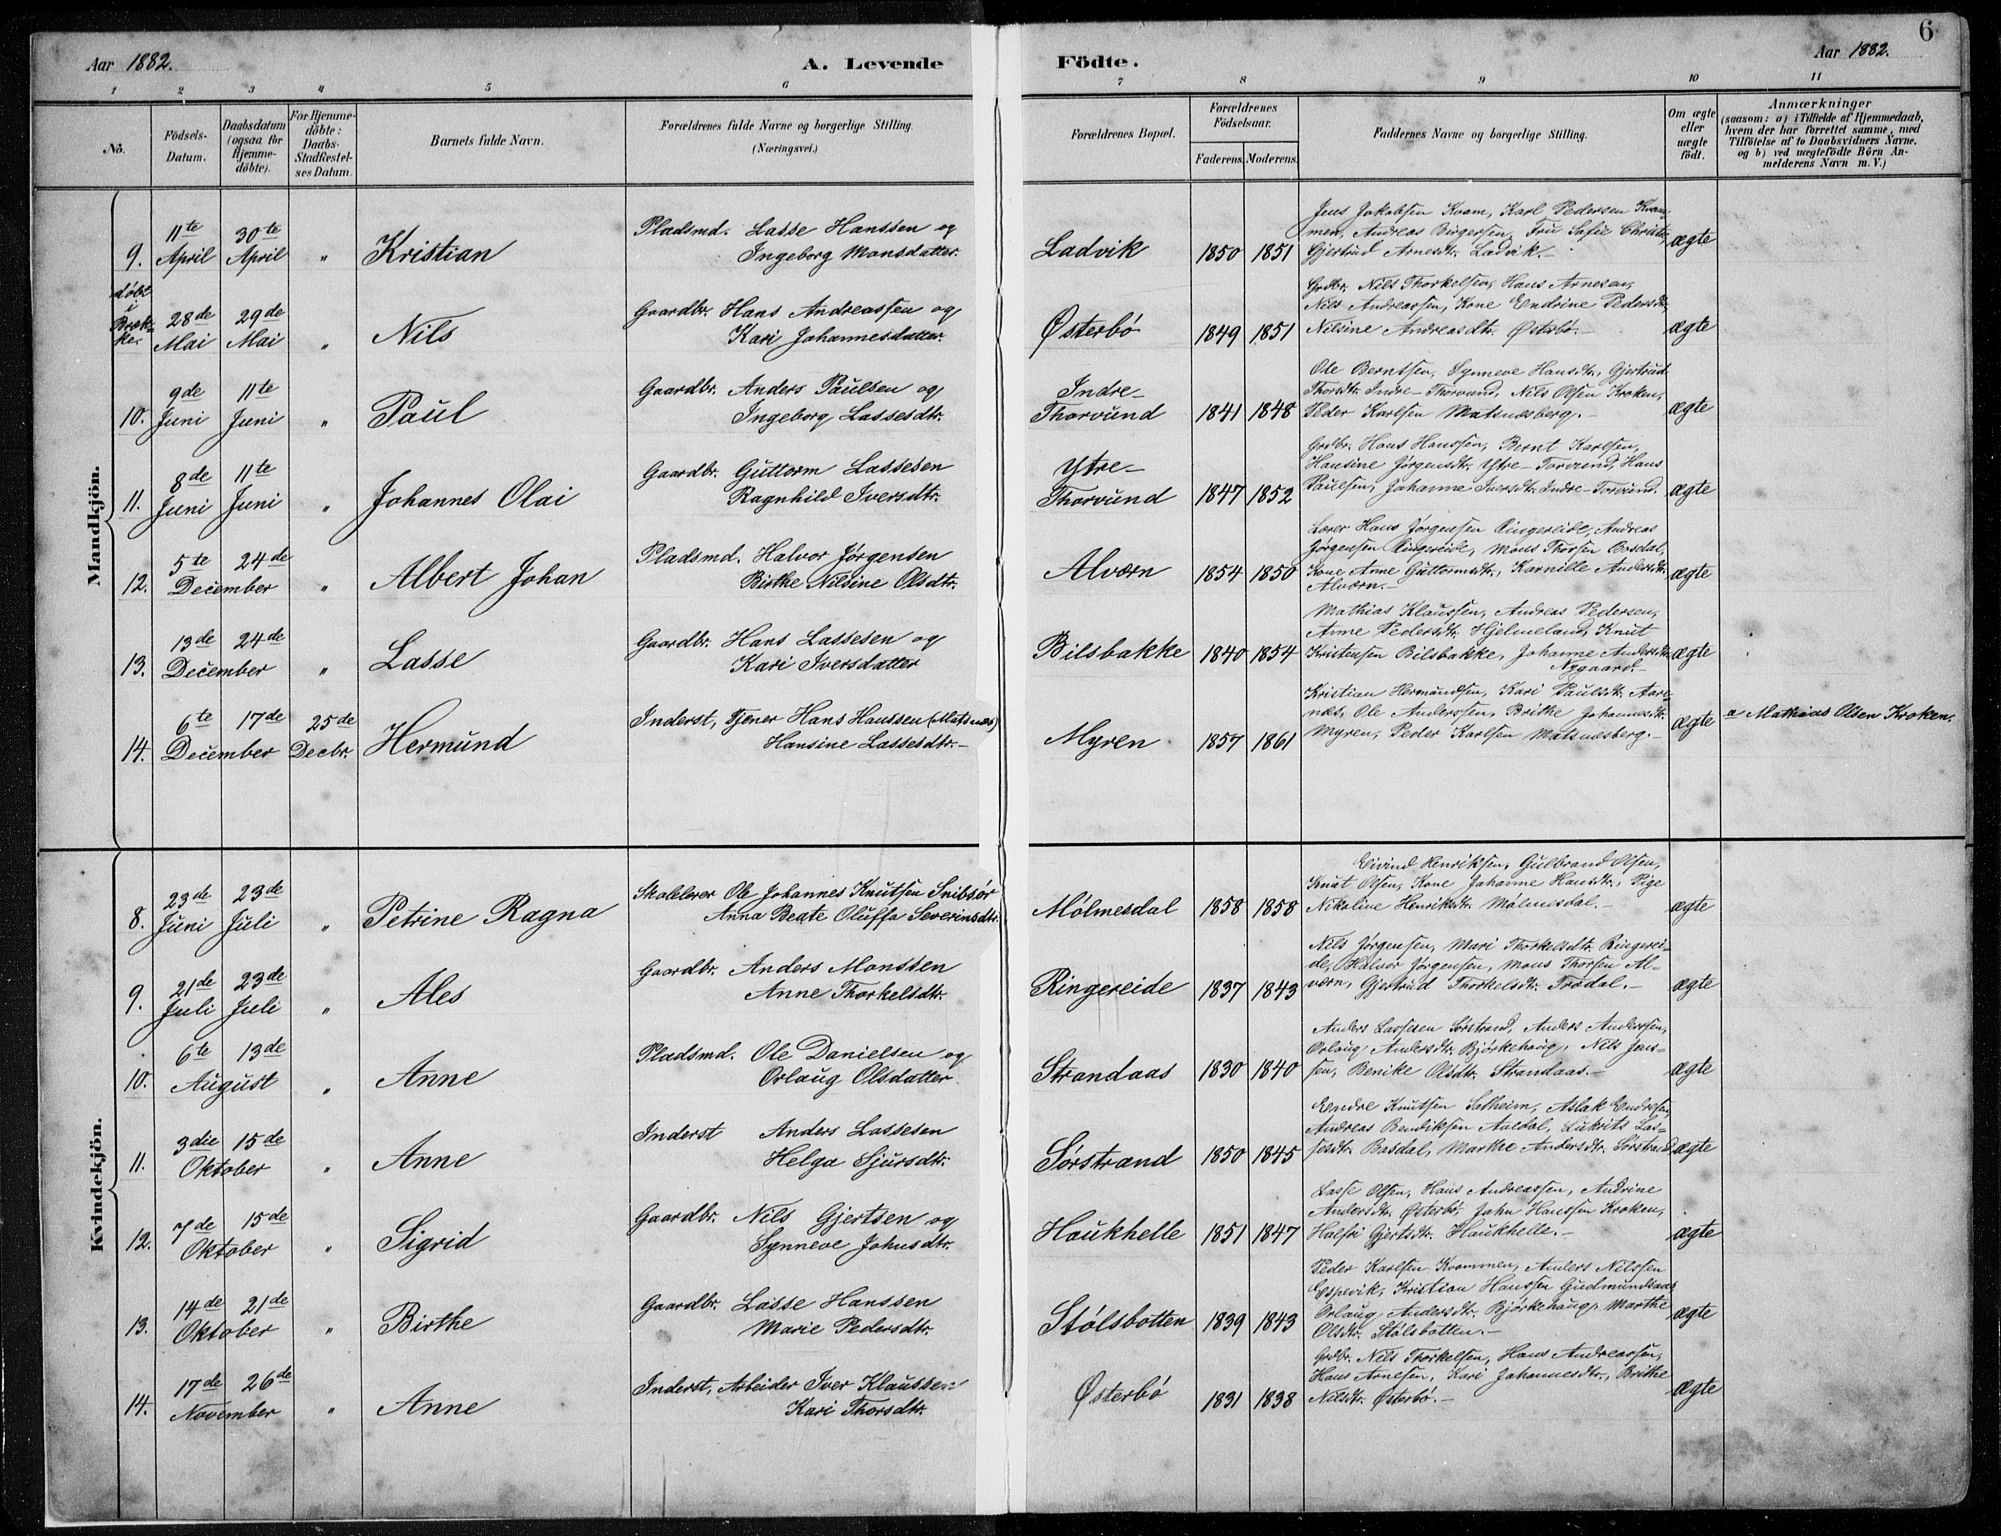 6
Aar 1882. A. Levende Födte. Aar 1882.
1 2 3 4 5 6 7 8 9 10 11
No.
Födsels-
Datum.
Daabsdatum
(ogsaa for
Hjemme-
döbte).
For Hjemme-
döbte:
Daabs-
Stadfæstel-
ses Datum.
Barnets fulde Navn.
Forældrenes fulde Navne og borgerlige Stilling.
(Næringsvei.)
Forældrenes Bopæl.
Forældrenes
Födselsaar.
Faderens. Moderens.
Faddernes Navne og borgerlige Stilling.
Om ægte
eller
uægte
födt.
Anmærkninger
(saasom: a) i Tilfælde af Hjemmedaab,
hvem der har forrettet samme, med
Tilföielse af to Daabsvidners Navne.
og b) ved uægtefödte Börn An-
melderens Navn m. V.)
Mandkjön.
9.
11te April
30te April
"
Kristian
Pladsmd. Lasse Hanssen og
Ingeborg Monsdatter.
Ladvik
1850 1851
Jens Jakobsen Kvam, Karl Pedersen Kvam-
men, Andreas Birgersen, Fru Sofie Christie,
Gjertrud Arnesdtr. Ladvik.-
ægte
döbt
i
Bræk-
ke.
28de Mai
29de Mai
"
Nils
Gaardbr. Hans Andreassen og
Kari Johannesdatter.
Østerbö
1849 1851
Grdbr. Nils Thorkelsen, Hans Arnesen,
Nils Andreassen, Kone Endrine Pedersdtr.
Nilsine Andreasdtr. Østerbö.-
ægte
10.
9de Juni
11te Juni
"
Paul
Gaardbr. Anders Paulsen og
Ingeborg Lassesdtr.
Indre-
Thorvund
1841 1848
Ole Berntsen, Synneve Hansdtr., Gjertrud
Thorsdtr. Indre-Thorvund, Nils Olsen Kroken,
Peder Karlsen Matsnesberg.-
ægte
11.
8de Juni
11te Juni
"
Johannes Olai
Gaardbr. Guttorm Lassesen
Ragnhild Iversdtr.
Ytre-
Thorvund
1847 1852
Grdbr. Hans Hanssen, Bernt Karlsen,
Hansine Jørgensdtr. Ytre-Torvund, Hans
Paulsen, Johanne Iversdtr. Indre-Torvund.
ægte
12.
5te 24de
December
"
Albert Johan
Pladsmd. Halvor Jørgensen
Birthe Nilsine Olsdtr.
Alværn
1854 1850
Lærer Hans Jørgensen Ringereide, Andreas
Jørgensen Ringereide, Mons Thorsen
Kone Anne Guttormsdtr., Karnille Andersdtr.
Alværn.-
ægte
13.
13de 24de
December
"
Lasse
Gaardbr. Hans Lassesen og
Kari Iversdatter
Bilsbakke
1840 1854
Mathias Klaussen, Andreas Pedersen,
Anne Pedersdtr. Hjelmeland, Knut
Kristensen Bilsbakke, Johanne Andersdtr.
Nygaard.-
ægte
14.
6te 17de
December
25de
Decbr.
Hermund
Inderst, Tjener Hans Hanssen (Matsnes)
Hansine Lassesdtr.-
Myren
1857 1861
Kristian Hermundsen, Kari Paulsdtr. Aare-
Ole Anderssen, Brithe Johannesdtr.
Myren, Peder Karlsen Matsnesberg.-
ægte
a Mathias Olsen Kroken.
Kvindekjön.
8.
23de Juni
23de Juli
"
Petrine Ragna
Skolelærer Ole Johannes Knutsen Snilsör
Anna Beate Oluffa Severinsdtr.
Mølmesdal
1858 1858
Eivind Henriksen, Gulbrand Olsen,
Knut Olsen, Kone Johanne Hansdtr., Pige
Nikoline Henriksdtr. Mølmesdal.-
ægte
9.
21de Juli
23de Juli
"
Ales
Gaardbr. Anders Monssen
Anne Thorkelsdtr.
Ringereide
1837 1843
Nils Jørgensen, Mari Thorkelsdtr. Ringerei-
de, Halvor Jørgensen, Mons Thorsen Al-
værn, Gjertrud Thorkelsdtr. Trædal.-
ægte
10.
6te 13de
August
"
Anne
Pladsmd. Ole Danielsen og
Orlaug Olsdatter.
Strandaas
1830 1840
Anders Lassesen Sørstrand, Anders Anderssen,
Orlaug Andersdtr. Bjørkehaug, Nils Jens-
sen, Benike Olsdtr. Strandaas.-
ægte
11.
3die 15de
Oktober
"
Anne
Inderst Anders Lassesen
Helga Sjursdtr.
Sørstrand
1850 1845
Endre Knutsen Salheim, Aslak Endresen,
Andreas Bendiksen Las-
sesdtr. Basdal, Marthe Andersdtr. Sørstrand
ægte
12.
7de 15de
Oktober
"
Sigrid
Gaardbr. Nils Gjertsen og
Synneve Johnsdtr.
Haukhelle
1851 1847
Lasse Olsen, Hans Andreassen, Andrine
Andersdtr. Østerbö, John Hanssen Kroken,
Halfri Gjertsdtr. Haukhelle.-
ægte
13.
14de 21de
Oktober
"
Birthe
Gaardbr. Lasse Hanssen
Marie Pedersdtr.
Stølsbotten
1839 1843
Peder Karlsen Kvammen, Anders Nilssen
Espevik, Kristian Hanssen Gudmundsaas
Orlaug Andersdtr. Bjørkehaug, Marthe
Olsdtr. Stølsbotten.-
ægte
14.
17de 26de
November
"
Anne
Inderst, Arbeider Iver Klaussen
Kari Thorsdtr.
Østerbö
1831 1838
Grdbr. Nils Thorkelsen, Hans Andreassen,
Hans Arnesen, Kari Johannesdtr., Brithe
Nilsdtr. Østerbö.-
ægte